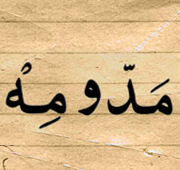 مَدّ و مِهْ